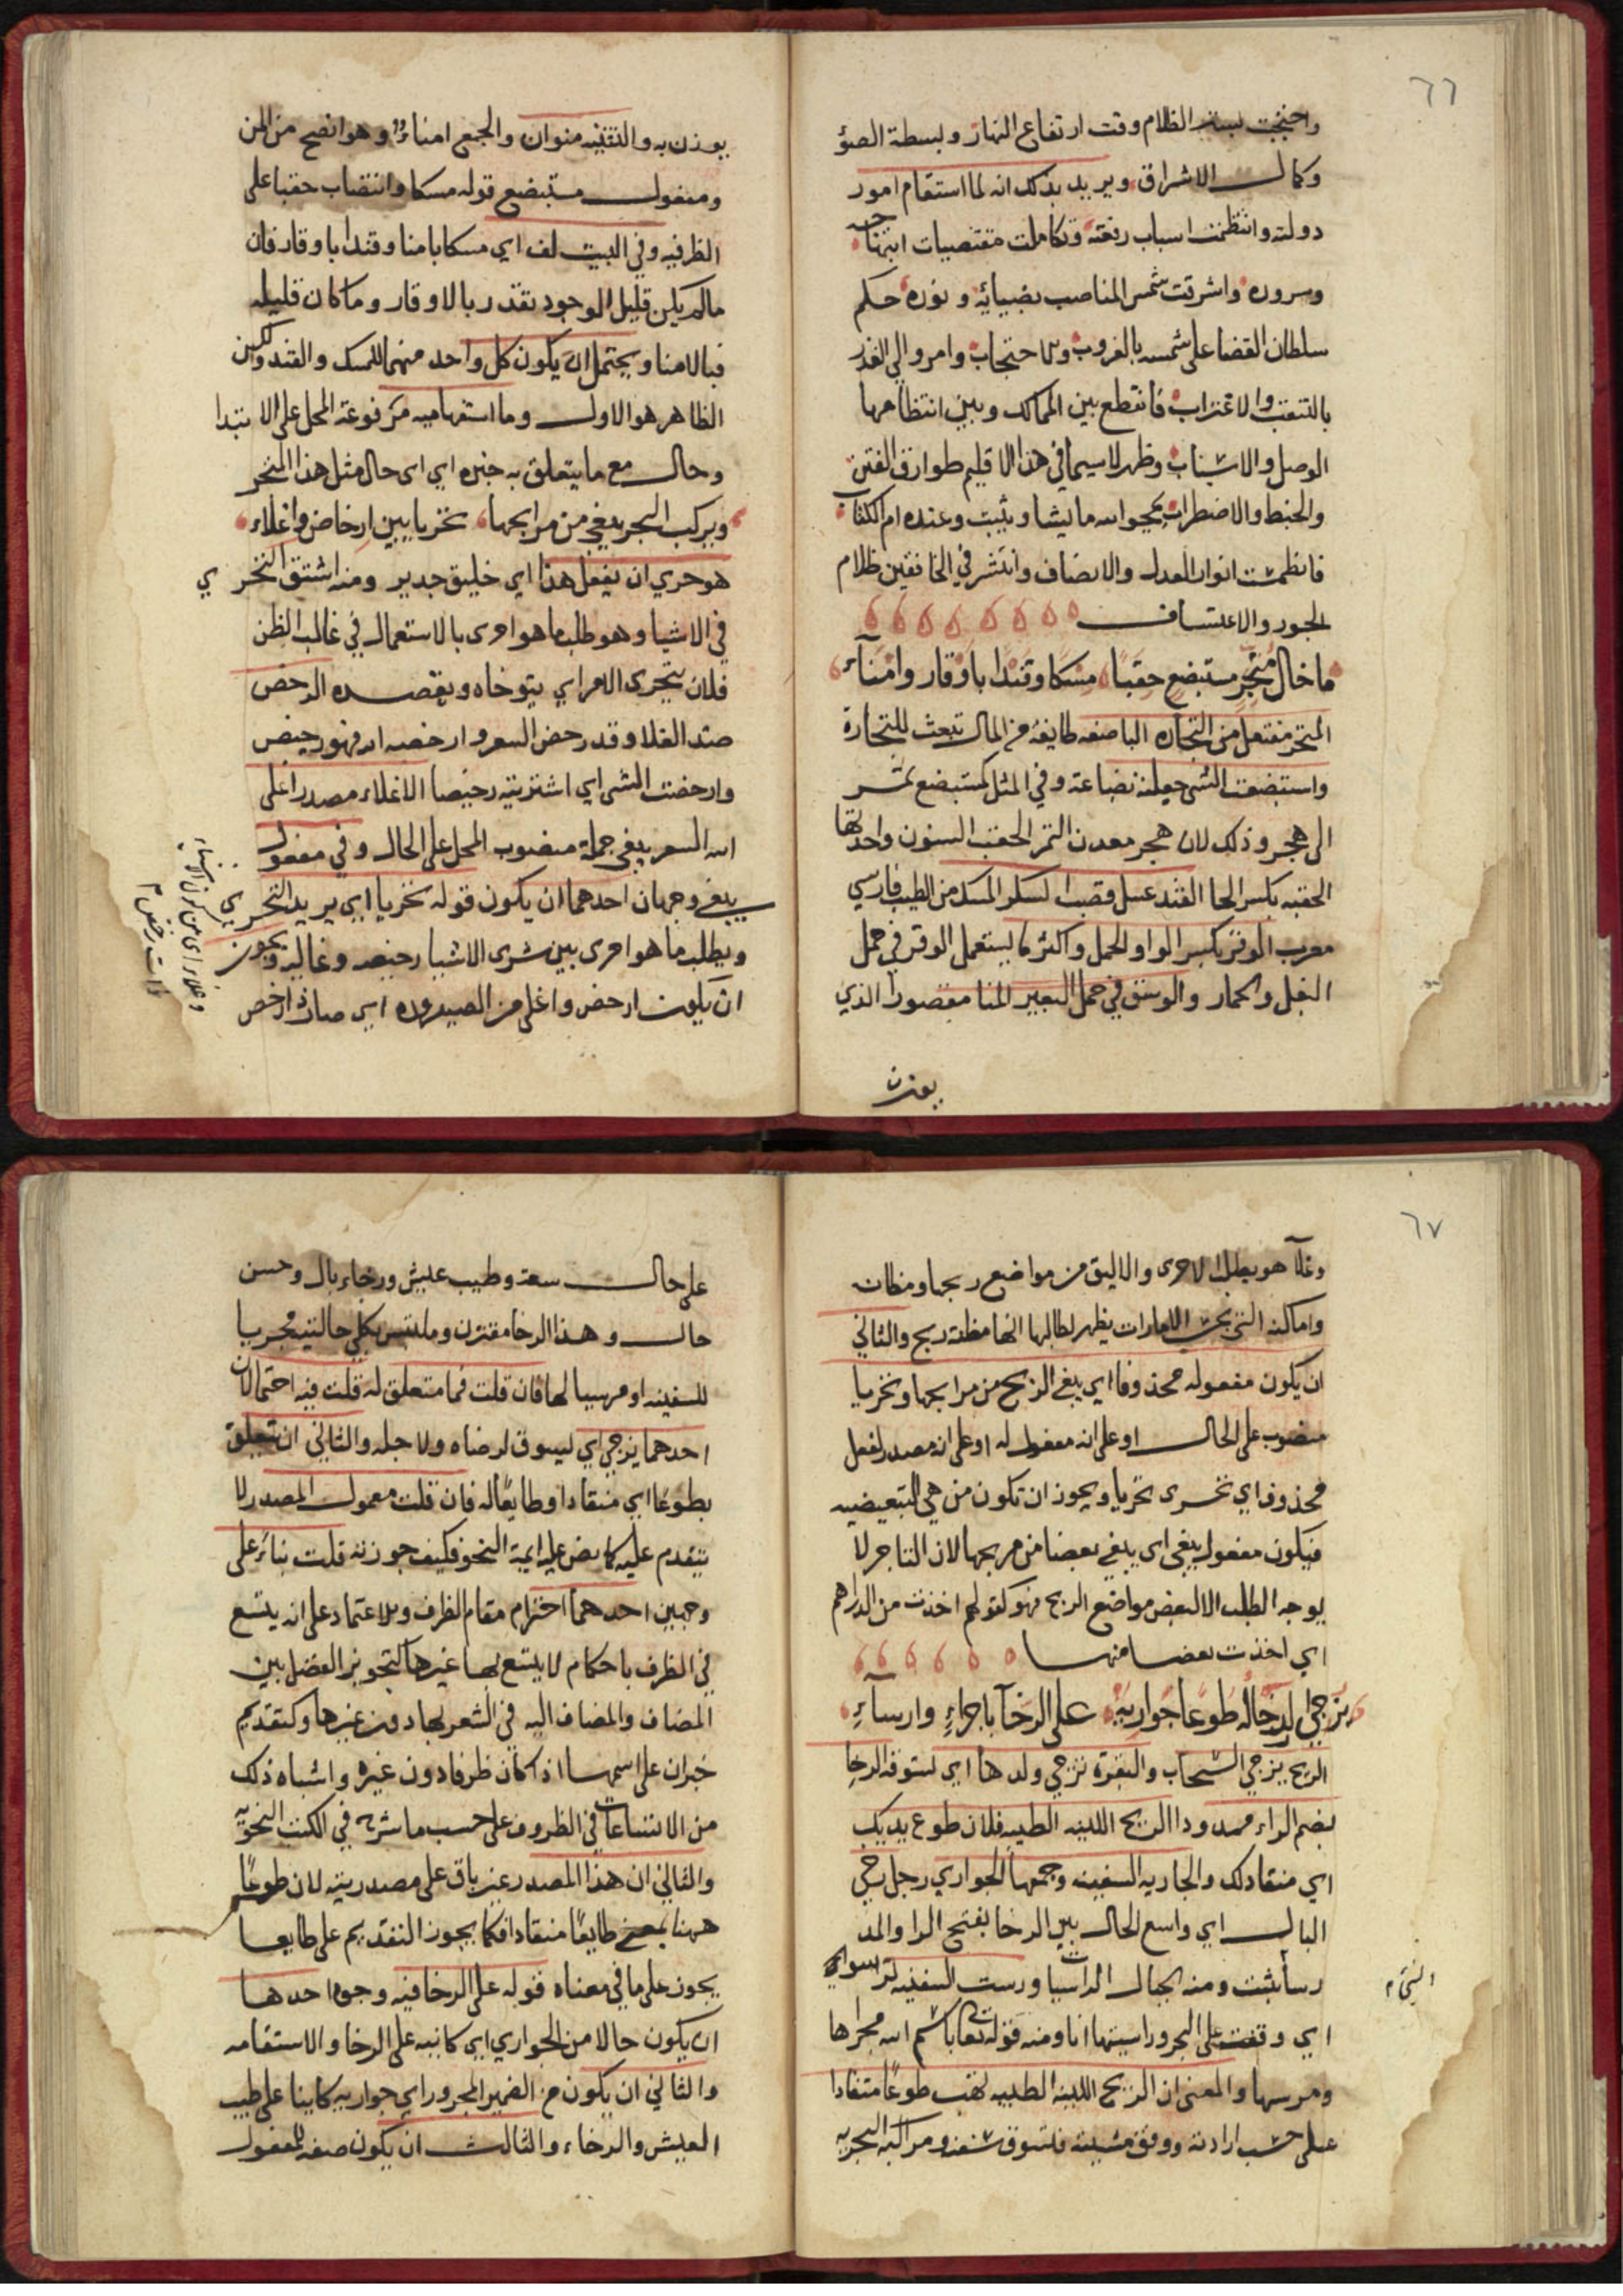 ٦٦
واحتجبت بستر الظلام وقت ارتفاع النهار وبسطة الضوٴ
وكمال الاشراق ويريد بذلك انه لما استقام امور
دولته وانتظمت اسباب رفعته وتكاملت مقتضيات ابتهاجه
وسروره واشرقت شمس المناصب بضيائه ونوره حكم
سلطان القضا على شمسه بالغروب والاحتجاب وامر والي القدر
بالتنقب والاغتراب فانقطع بين الممالك وبين انتظامها
الوصل والاسباب وظهر لا سيما في هذا الاقليم طوارق الفتن
والخبط والاضطراب يمحوا الله ما يشا ويثبت وعنده ام الكتاب
فانطمست انوار العدل والانصاف وانتشر في الخافقين ظلام
الجور والاعتساف
ما خال متجر مستبضع حقبًا مسكا وقندا باوقار وامناء
المتجر مفتعل من التجاره الباضعه طايفة من المال تبعث للتجارة
واستبضعت الشى جعلته بضاعة وفي المثل كمستبضع تمر
الى هجر وذلك لان هجر معدن التمر الحقب السنون واحدتها
الحقبه بكسر الحا القند عسل قصب السكر المسك من الطيب فارسي
معرب الوقر بكسر الواو الحمل واكثر ما يستعمل الوقر في حمل
البغل والحمار والوسق في حمل البعير المنا مقصورا الذي
يوزن
يوزن به والتثنيه منوان والجمع امناء وهو افصح من المن
ومفعول مستبضع قوله مسكا وانتصاب حقبا على
الظرفيه وفي البيت لف اي مسكا بامنا وقندا باوقار فان
مالم يكن قليل الوجود يقدر بالاوقار وما كان قليله
فبالامنا ويحتمل ان يكون كل واحد منهما للمسك والقند ولكن
الظاهر هو الاول وما استفهاميه مرفوعة المحل على الابتدا
وحال مع ما يتعلق به خبره اي اى حال مثل هذا المتجر
ويركب البحر يبغي من مرابحها تحريا بين ارخاص واغلاء
هو حري ان يفعل هذا اي خليق جدير ومنه اشتق التحري
في الاشيا وهو طلب ما هو احرى بالاستعمال في غالب الظن
فلان يتحرى الامر اي يتوخاه ويقصده الرخص
ضد الغلا وقد رخص السعر وارخصه الله فهو رخيص
وارخصت الشى اي اشتريته رخيصا الاغلاء مصدر اغلى
الله السعر يبغي جملة منصوب المحل على الحال وفي مفعول
يبغي وجهان احدهما ان يكون قوله تحريا اي يريد التحري
ويطلب ما هو احرى بين شرى الاشيا رخيصه وغاليه ويجوز
ان يكون ارخص واغلى من الصيروره اي صار ذا رخص
٦٧
وغلا هو يطلب الاحرى والاليق من مواضع ربحها ومظان
واماكنه التي بحسب الامارات يظهر لطالبها انها مظنة ربح والثاني
ان يكون مفعوله محذوفا اي يبغي الربح من مرابحها وتحريا
منصوب على الحال او على انه مفعول له او على انه مصدر لفعل
محذوف اي تحرى تحريا ويجوز ان تكون من هي التبعيضيه
فيكون مفعول يبغي اى يبغي بعضا من مربحها لان التاجر لا
يوجه الطلب الا لبعض مواضع الربح فهو كقولهم اخذت من الدراهم
اي اخذت بعضا منها
يزجي لرخاله طوعا جواريه على الرخآ باجراءٍ وارساءٍ
الريح يزجي السحاب والبقرة تزجي ولدها اي تسوقه الرخا
بضم الراء ممدودا الريح اللينه الطيبه فلان طوع يديك
اي منقاد لك والجاريه السفينه وجمعها الجواري رجل رخي
البال اي واسع الحال بين الرخا بفتح الرا والمد
رسا ثبت ومنه الجبال الراسيات ورست السفينه ترسوا اي
اي وقفت على البحر وراسيتها انا ومنه قوله تعالى باسم الله مجراها
ومرسها والمعنى ان الريح اللينه الطيبه تهب طوعا منقادا
على حسب ارادته ووفق مشيته فتسوق سفنه ومراكبه البحريه
على حال سعة وطيب عيش ورخاء بال وحسن
حال وهذا الرخا مقترن وملتبس بكلي حالتيه مجريا
للسفينه او مرسيا لها فان قلت فما متعلق له قلت فيه احتمالان
احدهما يزجي اي ليسوق لرضاه ولاجله والثاني ان يتعلق
بطوعا اي منقادا وطايعًا له فان قلت معمول المصدر لا
يتقدم عليه كما نص عليه ايمة النحو فكيف جوزته قلت بناءً على
وجهين احدهما احترام مقام الظرف وبالاعتماد على انه يتسع
في الظرف باحكام لا يتسع بها غيرها كتجويز الفصل بين
المضاف والمضاف اليه في الشعر بها دون غيرها وكتقديم
خبر ان على اسمها اذا كان ظرفا دون غيره واشباه ذلك
من الاتساعات في الظروف على حسب ما شرح في الكتب النحويه
والثاني ان هذا المصدر غير باق على مصدريته لان طوعًا
ههنا بمعنى طايعًا منقادا فكما يجوز التقديم على طايعا
يجوز على ما في معناه قوله على الرخا فيه وجوه احدها
ان يكون حالا من الجواري اي كاينه على الرخا والاستقامه
والثاني ان يكون من الضمير المجرور اي جواريه كاينا على طيب
العيش والرخاء والثالث ان يكون صفه للمفعول